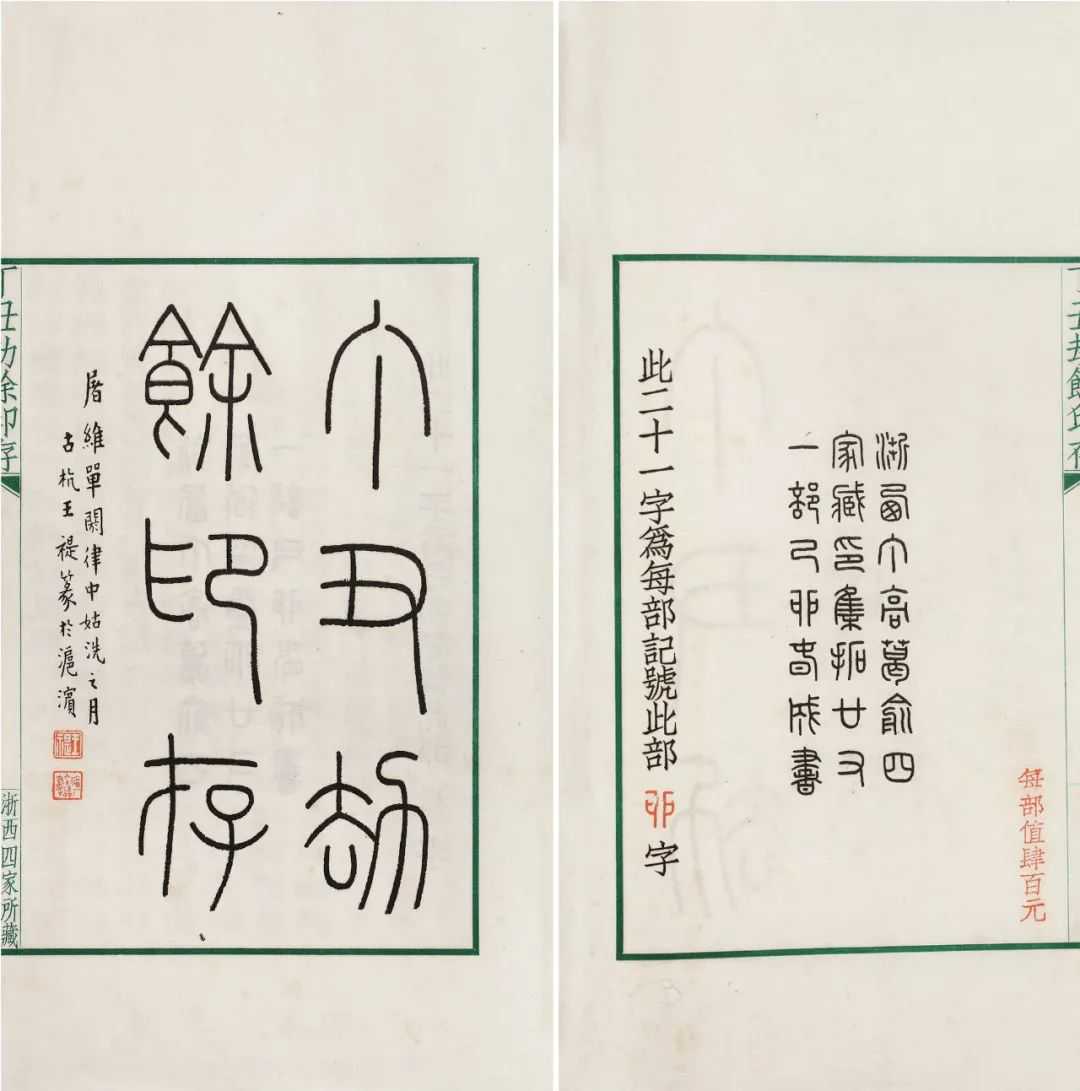 丁丑劫
餘印存
屠維單閼律中姑洗之月
古杭王禔篆於滬濱
丁丑劫餘印存
浙西四家所藏
丁丑劫餘印存
每部值肆百元
浙西丁高葛俞四
家臧印集拓廿又
一部己卯春成書
此二十一字爲每部記號此部卯字